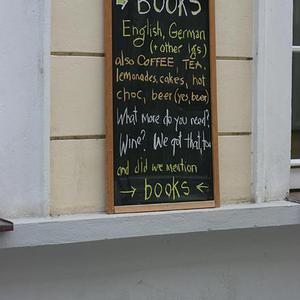 → BOOKS
English, German
(+ other lgs)
also COFFEE, TEA,
lemonades, cakes, hot
choc, beer (yes, beer)
What more do you need?
Wine? We got that, too
and did we mention
→ books ←